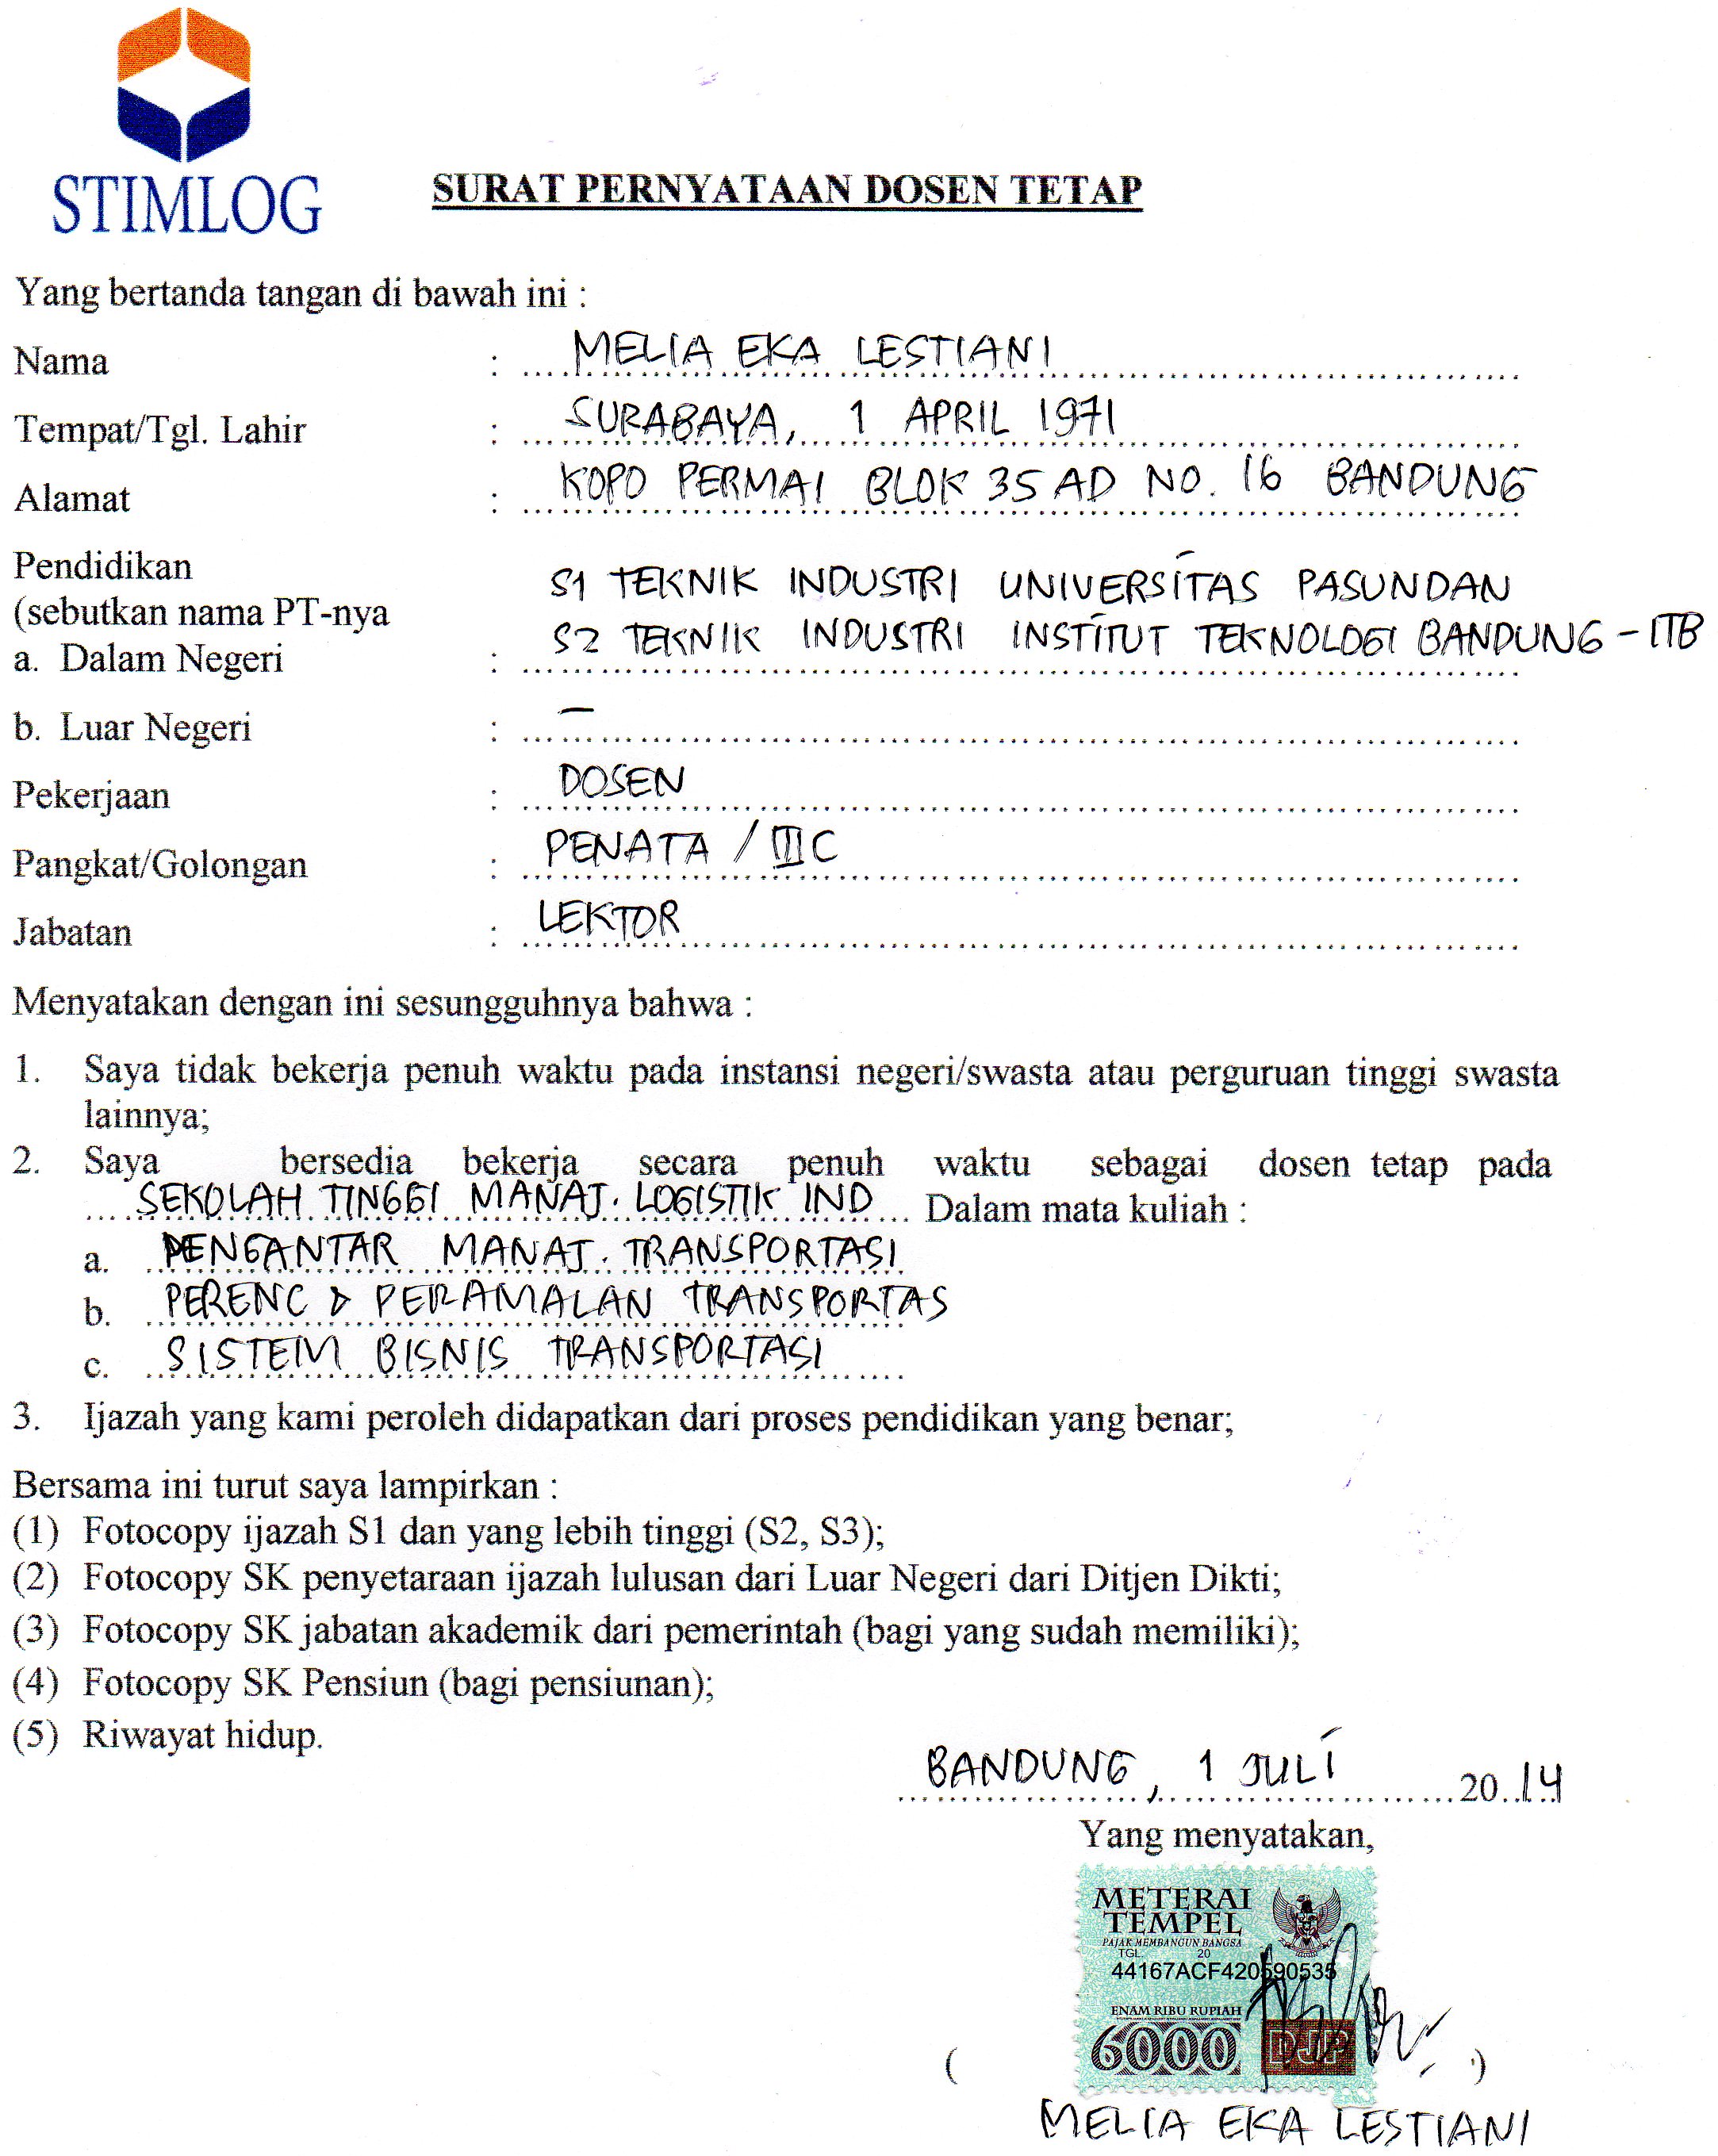 STIMLOG
SURAT PERNYATAAN DOSEN TETAP
Yang bertanda tangan di bawah ini :
Nama : MELIA EKA LESTIANI
Tempat/Tgl. Lahir : SURABAYA, 1 APRIL 1971
Alamat : KOPO PERMAI BLOK 35 AD NO. 16 BANDUNG
Pendidikan
(sebutkan nama PT-nya S1 TEKNIK INDUSTRI UNIVERSITAS PASUNDAN
a. Dalam Negeri : S2 TEKNIK INDUSTRI INSTITUT TEKNOLOGI BANDUNG - ITB
b. Luar Negeri : -
Pekerjaan : DOSEN
Pangkat/Golongan : PENATA / III C
Jabatan : LEKTOR
Menyatakan dengan ini sesungguhnya bahwa :
1. Saya tidak bekerja penuh waktu pada instansi negeri/swasta atau perguruan tinggi swasta
lainnya;
2. Saya bersedia bekerja secara penuh waktu sebagai dosen tetap pada
SEKOLAH TINGGI MANAJ. LOGISTIK IND Dalam mata kuliah :
a. PENGANTAR MANAJ. TRANSPORTASI
b. PERENC & PERAMALAN TRANSPORTAS
c. SISTEM BISNIS TRANSPORTASI
3. Ijazah yang kami peroleh didapatkan dari proses pendidikan yang benar;
Bersama ini turut saya lampirkan :
(1) Fotocopy ijazah S1 dan yang lebih tinggi (S2, S3);
(2) Fotocopy SK penyetaraan ijazah lulusan dari Luar Negeri dari Ditjen Dikti;
(3) Fotocopy SK jabatan akademik dari pemerintah (bagi yang sudah memiliki);
(4) Fotocopy SK Pensiun (bagi pensiunan);
(5) Riwayat hidup.
BANDUNG, 1 JULI 2014
Yang menyatakan,
METERAI
TEMPEL
PAJAK MEMBANGUN BANGSA
TGL. 20
44167ACF420590535
ENAM RIBU RUPIAH
6000 DJP
( )
MELIA EKA LESTIANI